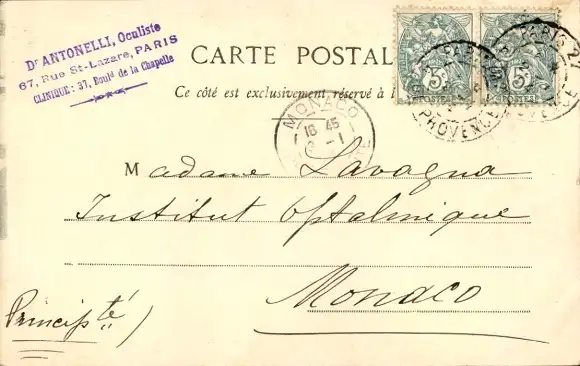 Dr ANTONELLI, Oculiste
67, Rue St-Lazare, PARIS
CLINIQUE : 37, Bould de la Chapelle
CARTE POSTAL
Ce côté est exclusivement réservé à l
5c
POSTES
5c
POSTES
PARIS
PROVENCE
PARIS
PROVENCE
MONACO
16 45
Madame Lavagna
Institut Optalmique
Monaco
Principté